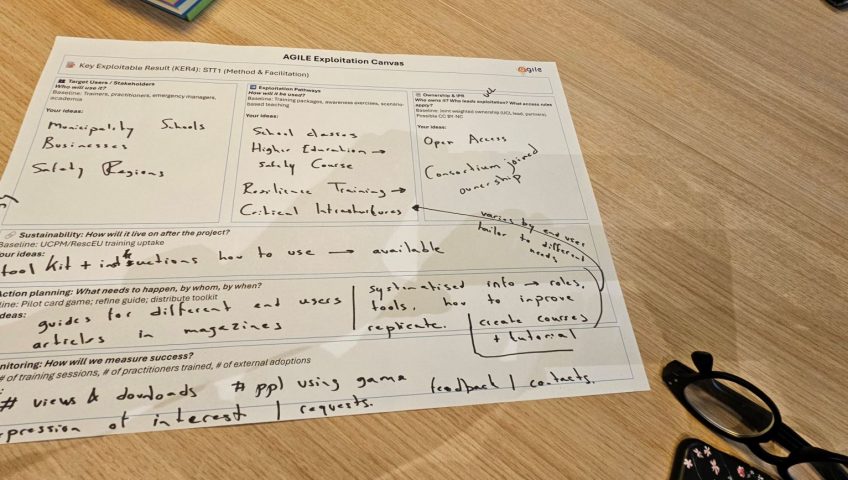 AGILE Exploitation Canvas
agile
Key Exploitable Result (KER4): STT1 (Method & Facilitation)
Target Users / Stakeholders
Who will use it?
Baseline: Trainers, practitioners, emergency managers,
academia
Your ideas:
Municipality Schools
Businesses
Safety Regions
Exploitation Pathways
How will it be used?
Baseline: Training packages, awareness exercises, scenario-
based teaching
Your ideas:
School classes
Higher Education →
Safety Course
Resilience Training →
Critical Infrastructures
Ownership & IPR
Who owns it? Who leads exploitation? What access roles
apply?
Baseline: Joint weighted ownership (UCL lead, partners)
Possible CC BY-NC
Your ideas:
Open Access
Consortium joined
ownership
varies by end user
tailor to different
needs
Sustainability: How will it live on after the project?
Baseline: UCPM/RescEU training uptake
our ideas:
tool kit + instructions how to use → available
Action planning: What needs to happen, by whom, by when?
line: Pilot card game; refine guide; distribute toolkit
deas:
guides for different end users
articles in magazines
systematised info → roles,
tools, how to improve
replicate.
create courses
+ tutorial
nitoring: How will we measure success?
# of training sessions, # of practitioners trained, # of external adoptions
# views & downloads # ppl using game feedback / contacts.
pression of interest / requests.